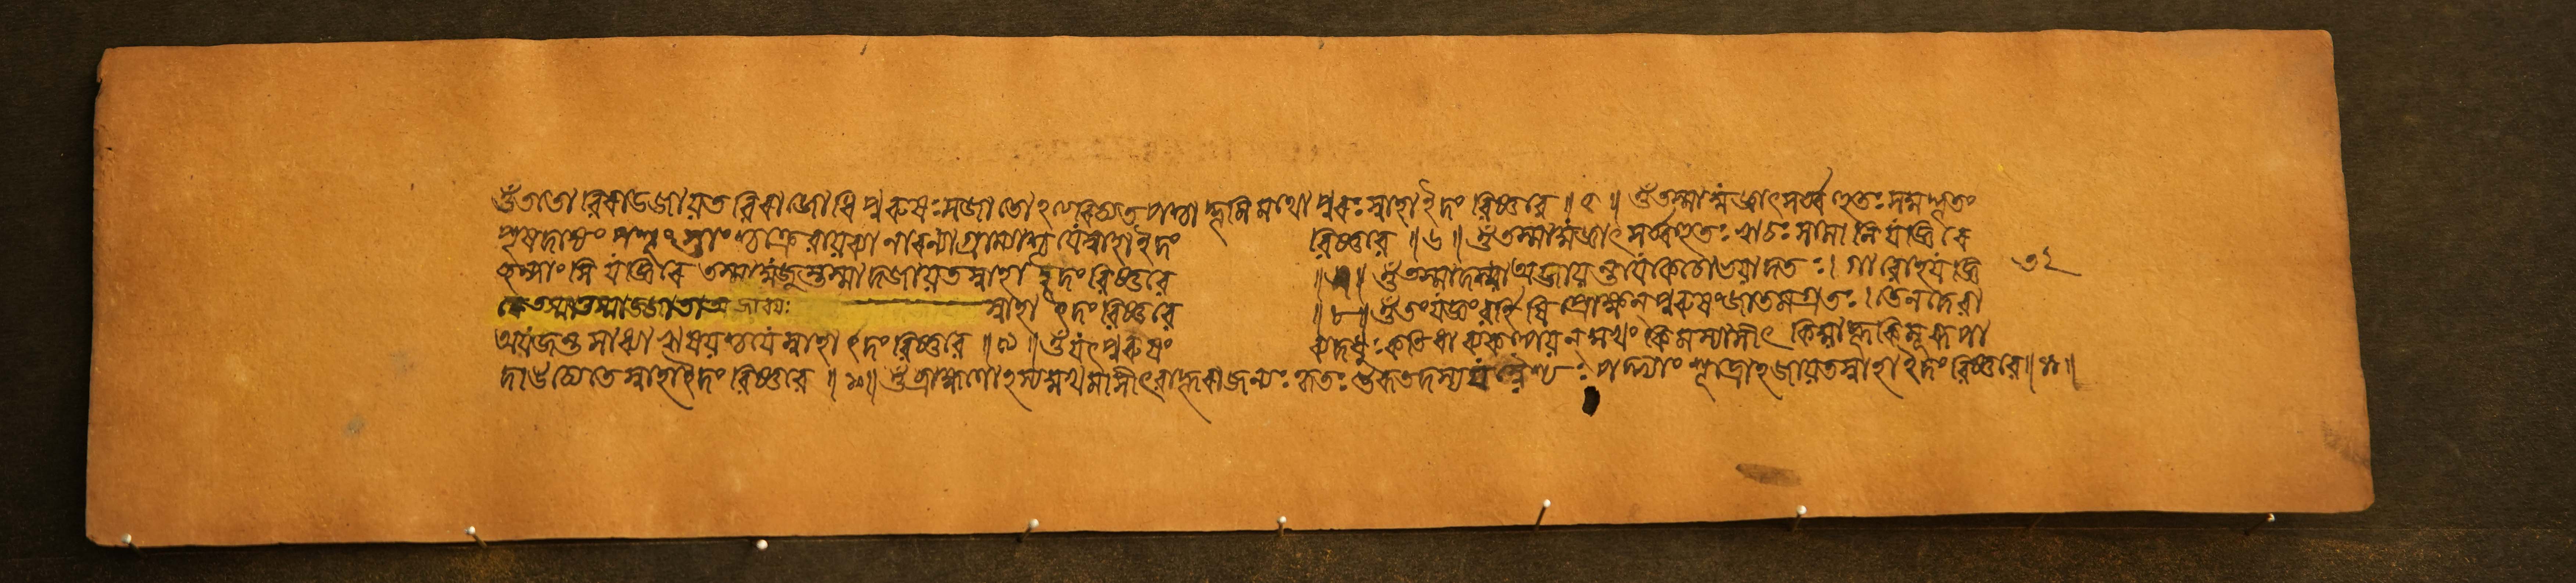 ওঁততো ৱিৰাডজায়ত ৱিৰাজোধি পুৰুষঃসজাতোঽত্যৰিচ্যত পশ্চাদ্ভূমি মথো পুৰঃস্বাহা ইদং ৱিষ্ণৱে ॥৫॥ ওঁতস্মাদ্যজ্ঞাৎসৰ্ব্বহুতঃ সম্ভৃতং
পৃষদাজ্যং পশূংস্তাং শ্চক্ৰে ৱায়ৱ্যা নাৰণ্যা গ্ৰাম্যাশ্চ যে স্বাহা ইদং ৱিষ্ণৱে ॥৬॥ ওঁতস্মাদ্যজ্ঞাৎ সৰ্ব্বহুতঃ ঋচঃ সামা নি যজ্ঞিৰে
ছন্দাং সি যজ্ঞিৰে তস্মাদ্যজুস্তস্মা দজায়ত স্বাহা ইদং ৱিষ্ণৱে ॥৭॥ ওঁতস্মাদশ্বা অজায়ন্ত যে কে চোভয়াদতঃ। গাৱোহ যজ্ঞি ৩২
ৰে তস্মাত্তস্মাজ্জাতা অজাৱয়ঃ স্বাহা ইদং ৱিষ্ণৱে ॥৮॥ ওঁতং যজ্ঞং ৱৰ্হি ষি প্ৰোক্ষন পুৰুষং জাতমগ্ৰতঃ। তেন দেৱা
অযজন্ত সাধ্যা ঋষয়শ্চ যে স্বাহা ইদং ৱিষ্ণৱে ॥৯॥ ওঁ যৎ পুৰুষং ব্যদধুঃ কতিধা ব্যকল্পয়ন মুখং কিমস্যাসীৎ কিম্বাহূ কিমূৰূ পা
দা উচ্যেতে স্বাহা ইদং ৱিষ্ণৱে ॥১০॥ ওঁব্ৰাহ্মণোঽস্য মুখমাসীৎ ৱাহূ ৰাজন্যঃ কৃতঃ ঊৰূ তদস্য যদ্বৈশ্যঃ পদ্ভ্যাং শূদ্ৰোঽজায়ত স্বাহা ইদং ৱিষ্ণৱে॥১১॥